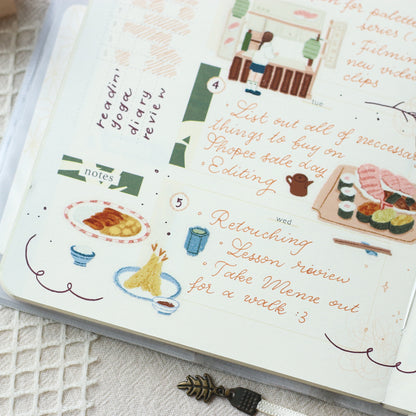 n for palette
series (
• Filming
new video
clips
readin'
yoga
diary
review
4
tue.
• List out all of neccesso
things to buy on
Shopee sale day
• Editing
notes
5
wed
• Retouching
• Lesson review
• Take Meme out
for a walk :3